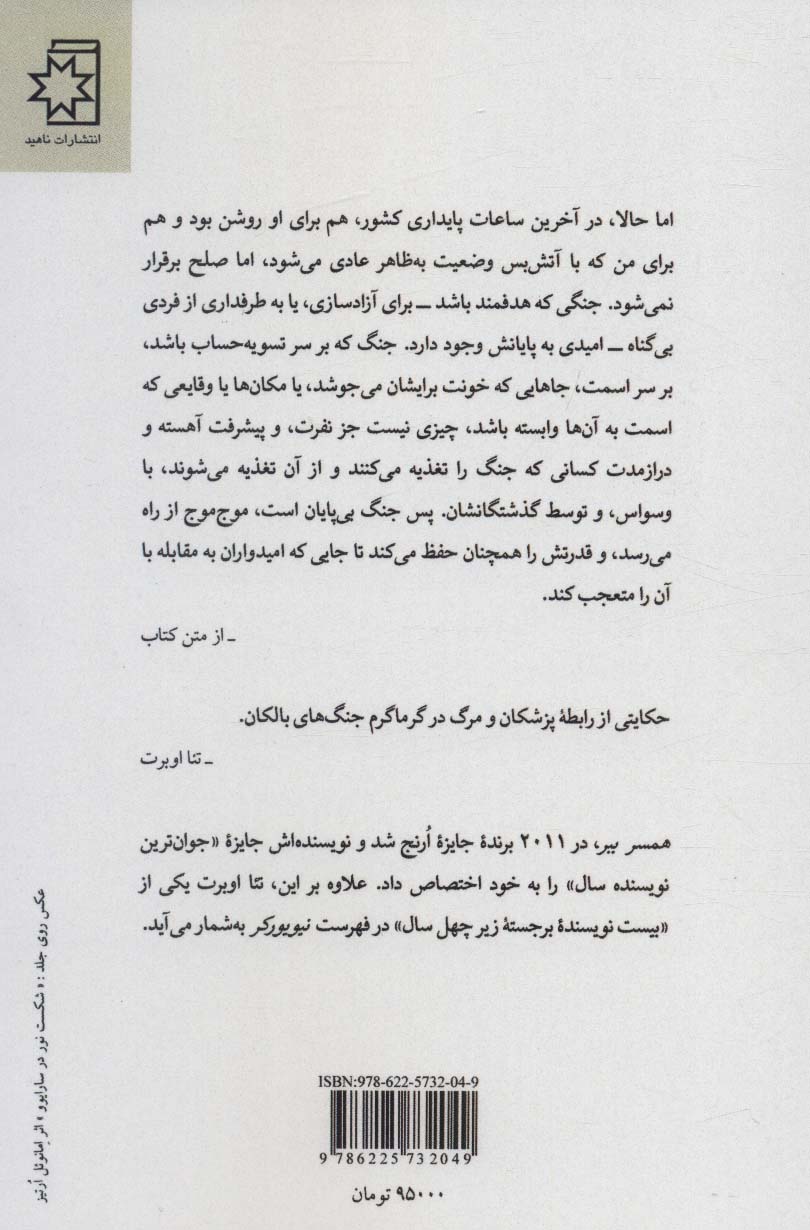 انتشارات ناهید
اما حالا، در آخرین ساعات پایداری کشور، هم برای او روشن بود و هم
برای من که با آتش‌بس وضعیت به‌ظاهر عادی می‌شود، اما صلح برقرار
نمی‌شود. جنگی که هدفمند باشد ــ برای آزادسازی، یا به طرفداری از فردی
بی‌گناه ــ امیدی به پایانش وجود دارد. جنگ که بر سر تسویه‌حساب باشد،
بر سر اسمت، جاهایی که خونت برایشان می‌جوشد، یا مکان‌ها یا وقایعی که
اسمت به آن‌ها وابسته باشد، چیزی نیست جز نفرت، و پیشرفت آهسته و
درازمدت کسانی که جنگ را تغذیه می‌کنند و از آن تغذیه می‌شوند، با
وسواس، و توسط گذشتگانشان. پس جنگ بی‌پایان است، موج‌موج از راه
می‌رسد، و قدرتش را همچنان حفظ می‌کند تا جایی که امیدواران به مقابله با
آن را متعجب کند.
ـ از متن کتاب
حکایتی از رابطهٔ پزشکان و مرگ در گرماگرم جنگ‌های بالکان.
ـ تئا اوبرت
همسر ببر، در ۲۰۱۱ برندهٔ جایزهٔ اُرنج شد و نویسنده‌اش جایزهٔ «جوان‌ترین
نویسنده سال» را به خود اختصاص داد. علاوه بر این، تئا اوبرت یکی از
«بیست نویسندهٔ برجستهٔ زیر چهل سال» در فهرست نیویورکر به‌شمار می‌آید.
عکس روی جلد: «شکست نور در سارایوو» اثر اِمانوئل اُرتیز
ISBN:978-622-5732-04-9
9 786225 732049
۹۵۰۰۰ تومان